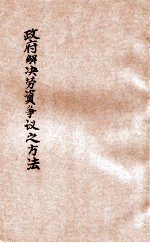 政府解决劳資爭议之方法